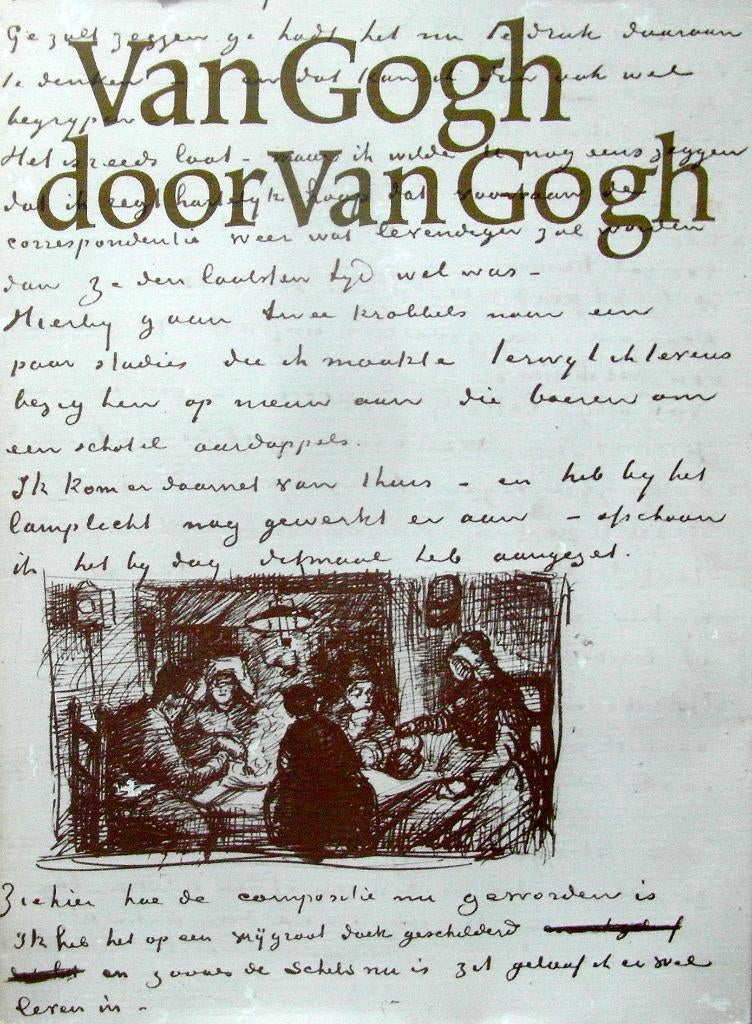 Van Gogh
door Van Gogh
Ge zult zeggen ge hadt het nu te druk daaraan
te denken en dat kan ik dan ook wel
begrypen
Het is reeds laat - maar ik wilde U nog eens zeggen
dat ik regt hartelyk hoop dat voortaan de
correspondentie weer wat levendiger zal worden
dan ze den laatsten tyd wel was -
Hierby gaan twee krabbels naar een
paar studies die ik maakte terwyl ik tevens
bezig ben op nieuw aan die boeren om
een schotel aardappels.
Ik kom er daarnet van thuis - en heb by het
lamplicht nog gewerkt er aan - ofschoon
ik het by dag ditmaal heb aangezet.
Ziehier hoe de compositie nu geworden is
Ik heb het op een vrij groot doek geschilderd
en zooals de schets nu is zit geloof ik er wel
leven in -